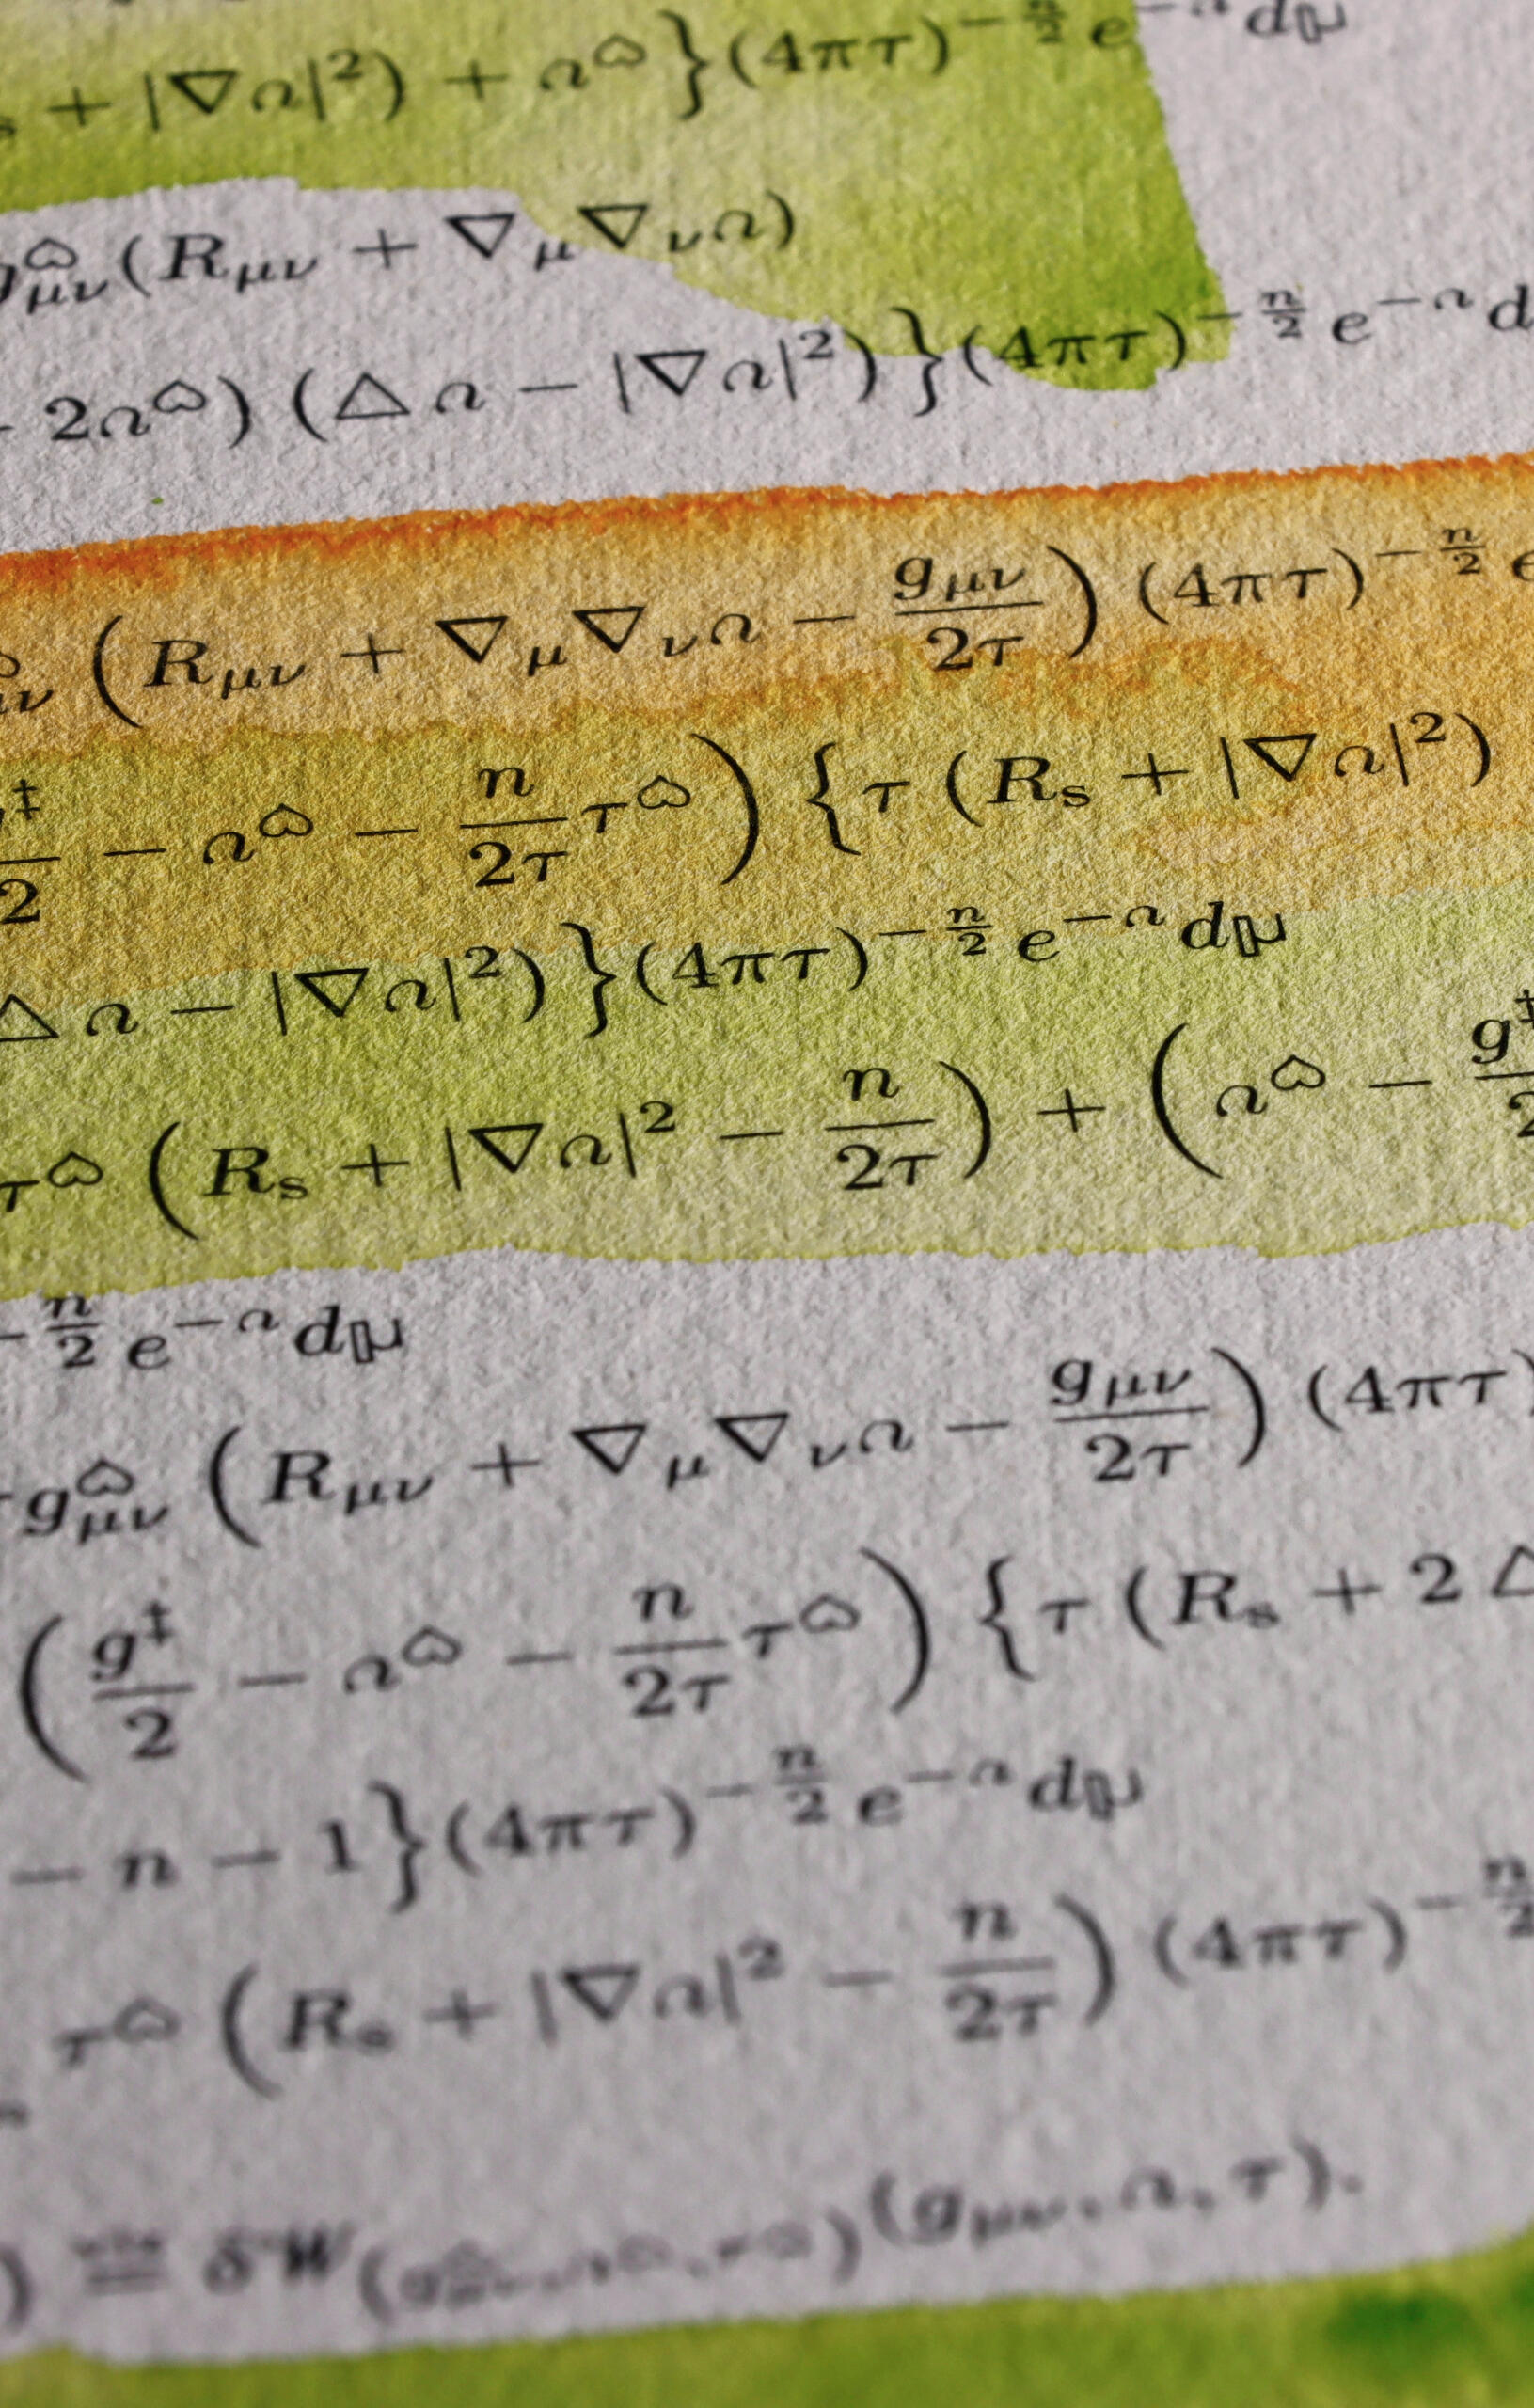 s + |∇𝑎|²) + 𝑎^⌂}(4πτ)^{-n/2} e^{-𝑎} dμ
g^⌂_{μν}(R_{μν} + ∇_μ∇_ν𝑎)
2𝑎^⌂) (△𝑎 − |∇𝑎|²)}(4πτ)^{-n/2} e^{-𝑎} d
μν (R_{μν} + ∇_μ∇_ν𝑎 − g_{μν}/2τ) (4πτ)^{-n/2} e
‡/2 − 𝑎^⌂ − n/2τ τ^⌂) {τ (R_s + |∇𝑎|²)
△𝑎 − |∇𝑎|²)}(4πτ)^{-n/2} e^{-𝑎} dμ
τ^⌂ (R_s + |∇𝑎|² − n/2τ) + (𝑎^⌂ − g^‡/2
-n/2 e^{-𝑎} dμ
g^⌂_{μν} (R_{μν} + ∇_μ∇_ν𝑎 − g_{μν}/2τ) (4πτ)
(g^‡/2 − 𝑎^⌂ − n/2τ τ^⌂) {τ (R_s + 2 △
− n − 1}(4πτ)^{-n/2} e^{-𝑎} dμ
τ^⌂ (R_s + |∇𝑎|² − n/2τ) (4πτ)^{-n/2}
) = δW_{(g^⌂_{μν}, 𝑎^⌂, τ^⌂)}(g_{μν}, 𝑎, τ).